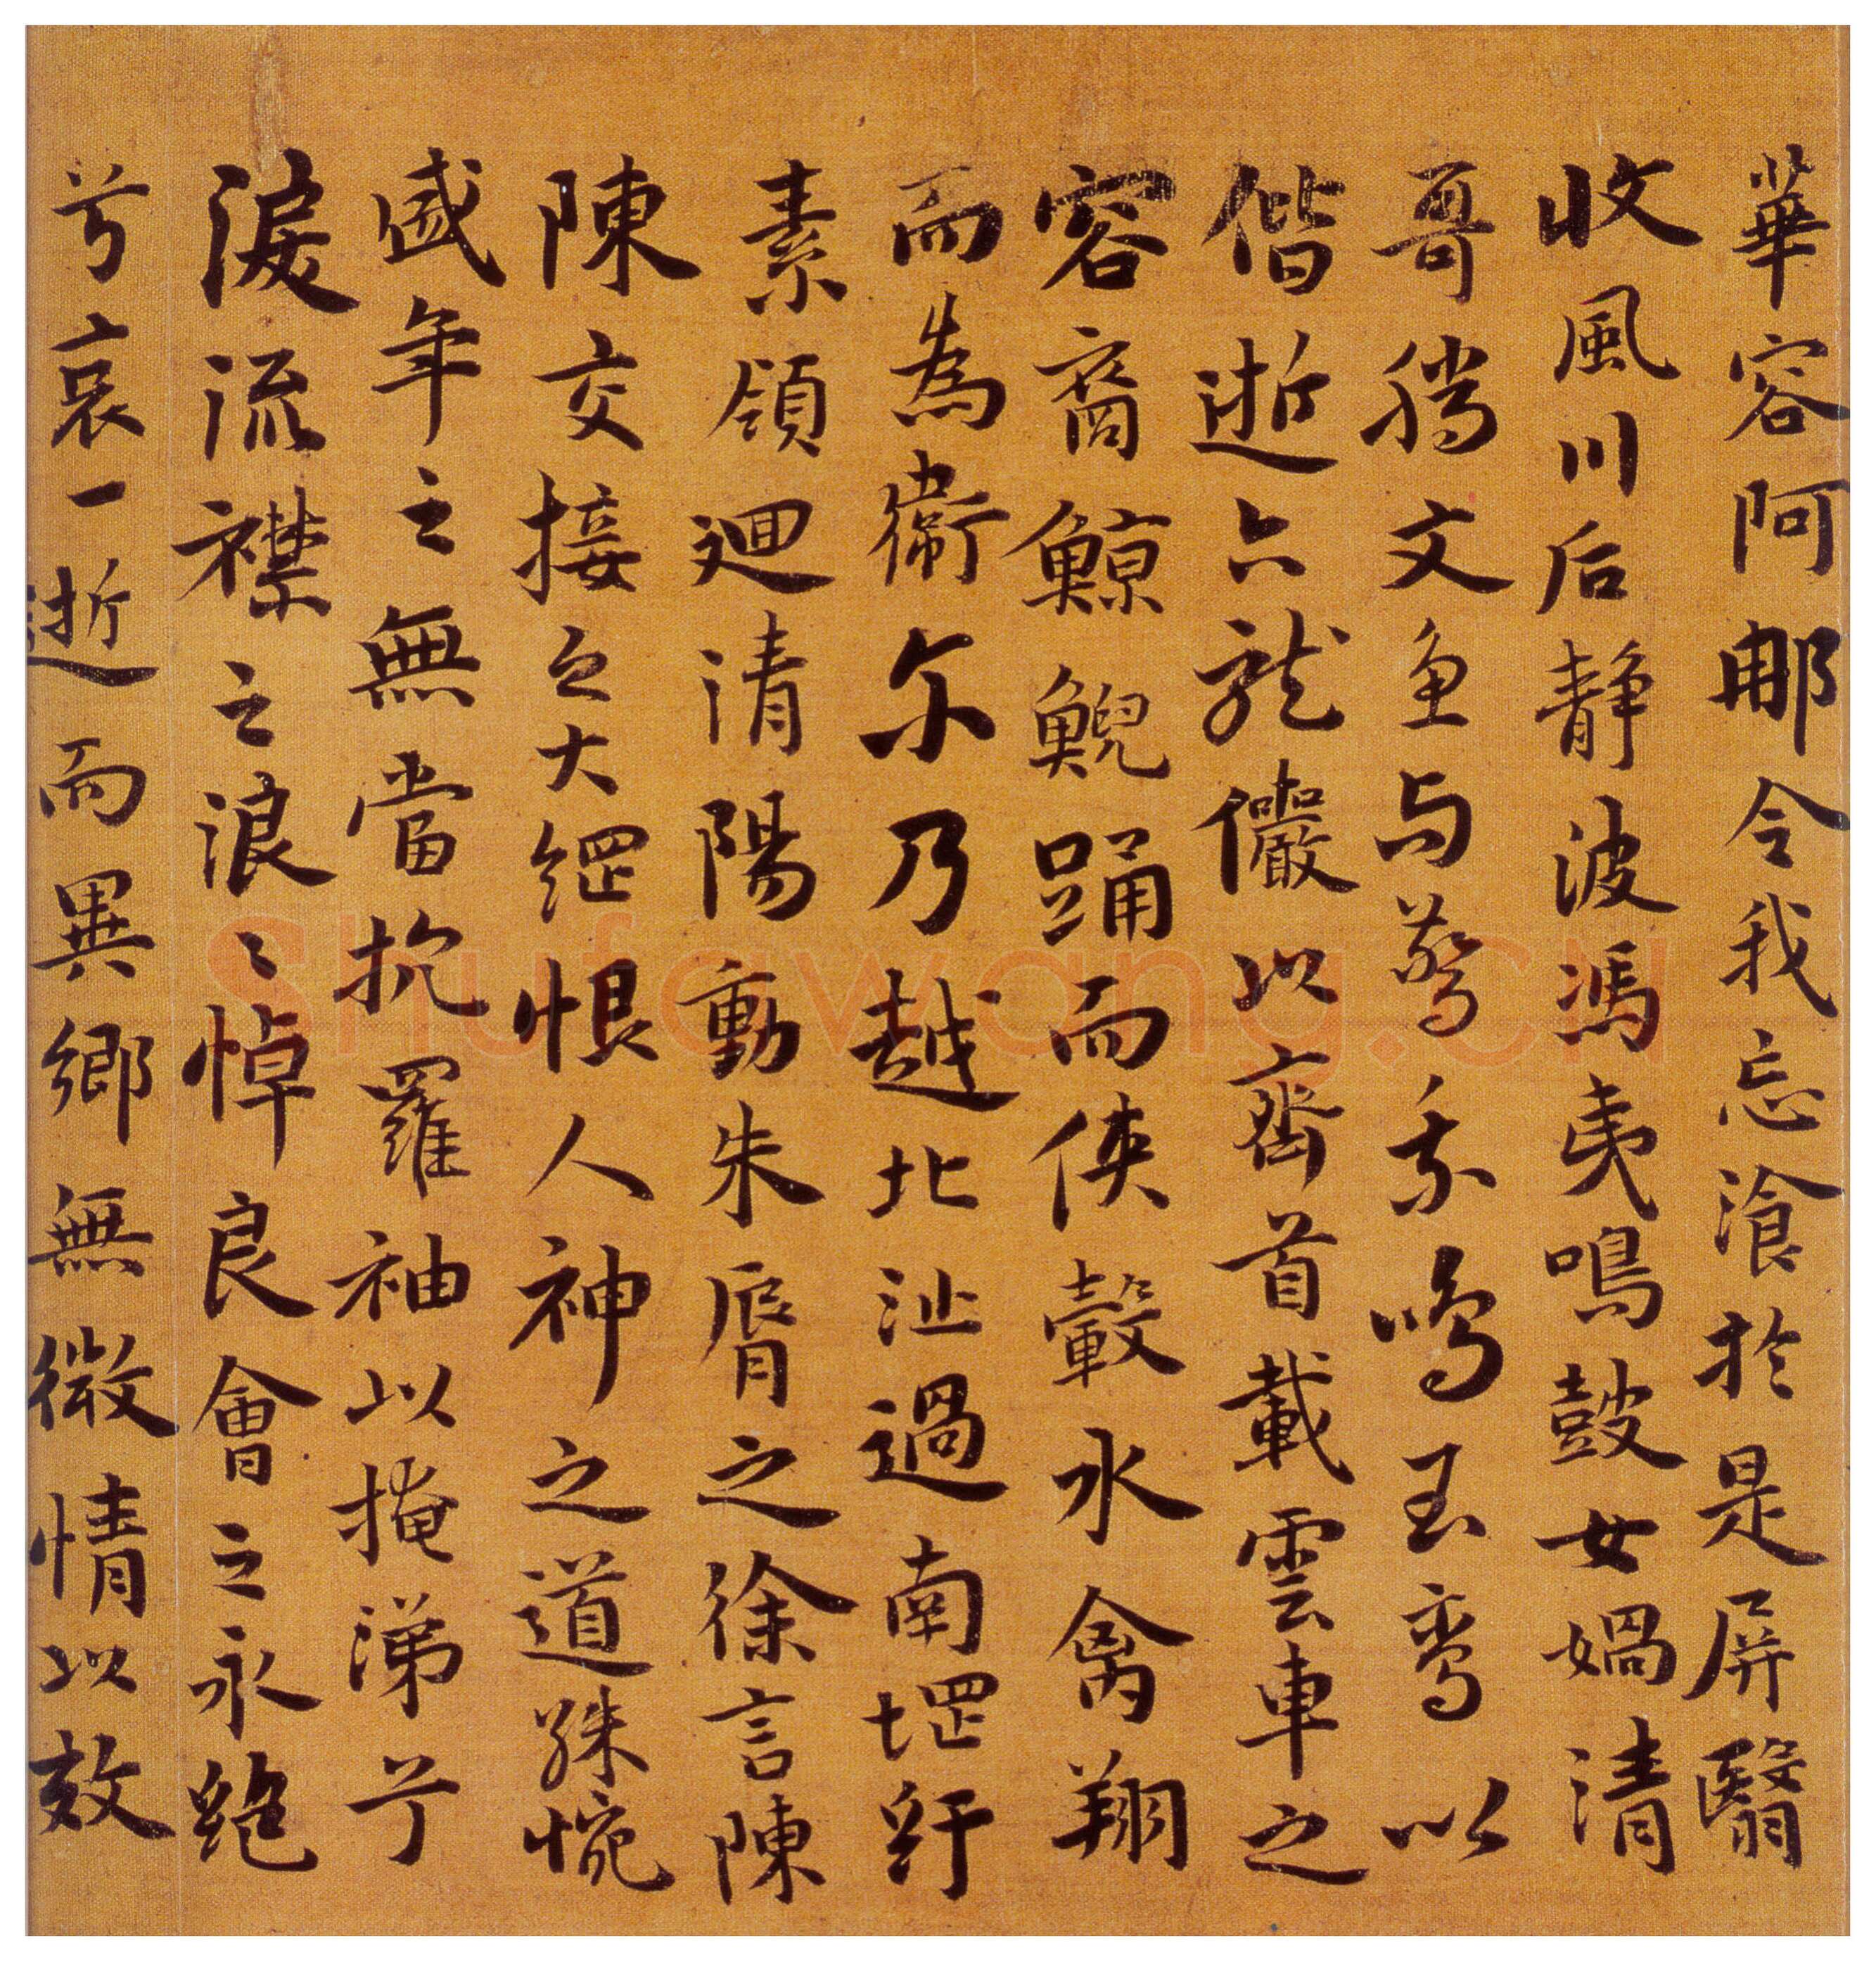 華容阿那令我忘湌於是屏翳
收風川后静波馮夷鳴鼓女媧清
哥騰文鱼与驚乘鸣玉鸾以
偕逝六龍儼以齊首載雲車之
容裔鯨鯢踊而俠轂水禽翔
而為衛尒乃越北沚過南堽紆
素領迴清陽動朱脣之徐言陳
陳交接之大綱恨人神之道殊惋
盛年之無當抗羅袖以掩涕兮
淚流襟之浪〻悼良會之永絕
兮哀一逝而異鄉無微情以效
shufawang.cn